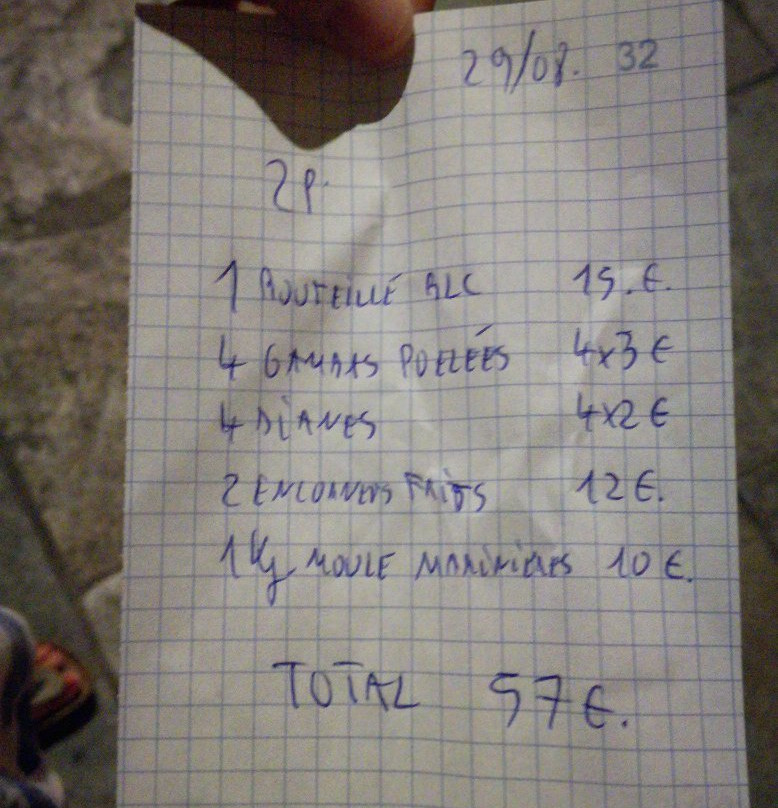 29/08. 32
2P.
1 BOUTEILLE BLC 15.€.
4 GAMBAS POELÉES 4x3€
4 DIANES 4x2€
2 ENCORNETS FRITS 12€.
1Kg MOULE MARINIERES 10€.
TOTAL 57€.